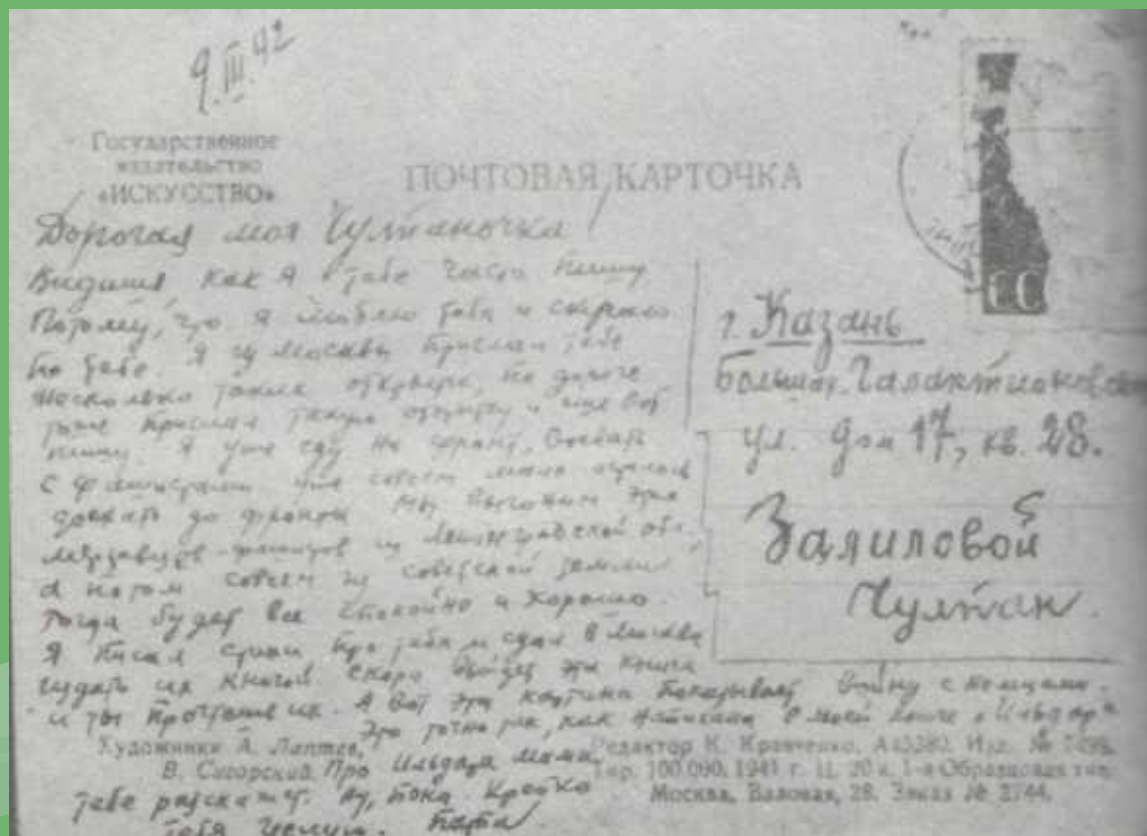 9.III.42
Государственное
издательство
«ИСКУССТВО»
ПОЧТОВАЯ КАРТОЧКА
Дорогая моя Чулпаночка!
Видишь, как я тебе часто пишу
Потому, что я люблю тебя и скучаю
по тебе. Я из Москвы прислал тебе
несколько таких открыток, по дороге
тоже прислал такую открытку и еще вот
пишу. Я уже еду на фронт, воевать
с фашистами уже совсем мало осталось
доехать до фронта Мы выгоним этих
мерзавцев-фашистов из Ленинградской обл.,
а потом совсем из советской земли
Тогда будет все спокойно и хорошо.
Я писал стихи про тебя и сдал в Москве
издать их книгой. Скоро выйдет эта книга
и ты прочтешь их. А вот эта картина показывает войну с немцами.
Это точно так, как написана в моей книге „Ильдар"
Про Ильдара мама
тебе расскажет. Ну, пока Крепко
тебя целую. Папа
г. Казань
Большая Галактионовская
ул. дом 17, кв. 28.
Залиловой
Чулпан.
Художники А. Лаптев,
В. Сигорский.
Редактор К. Кравченко. Изд. №
Тир. 100.000. 1941 г. Ц. 20 к. 1-я Образцовая тип.
Москва, Валовая, 28. Заказ № 2744.